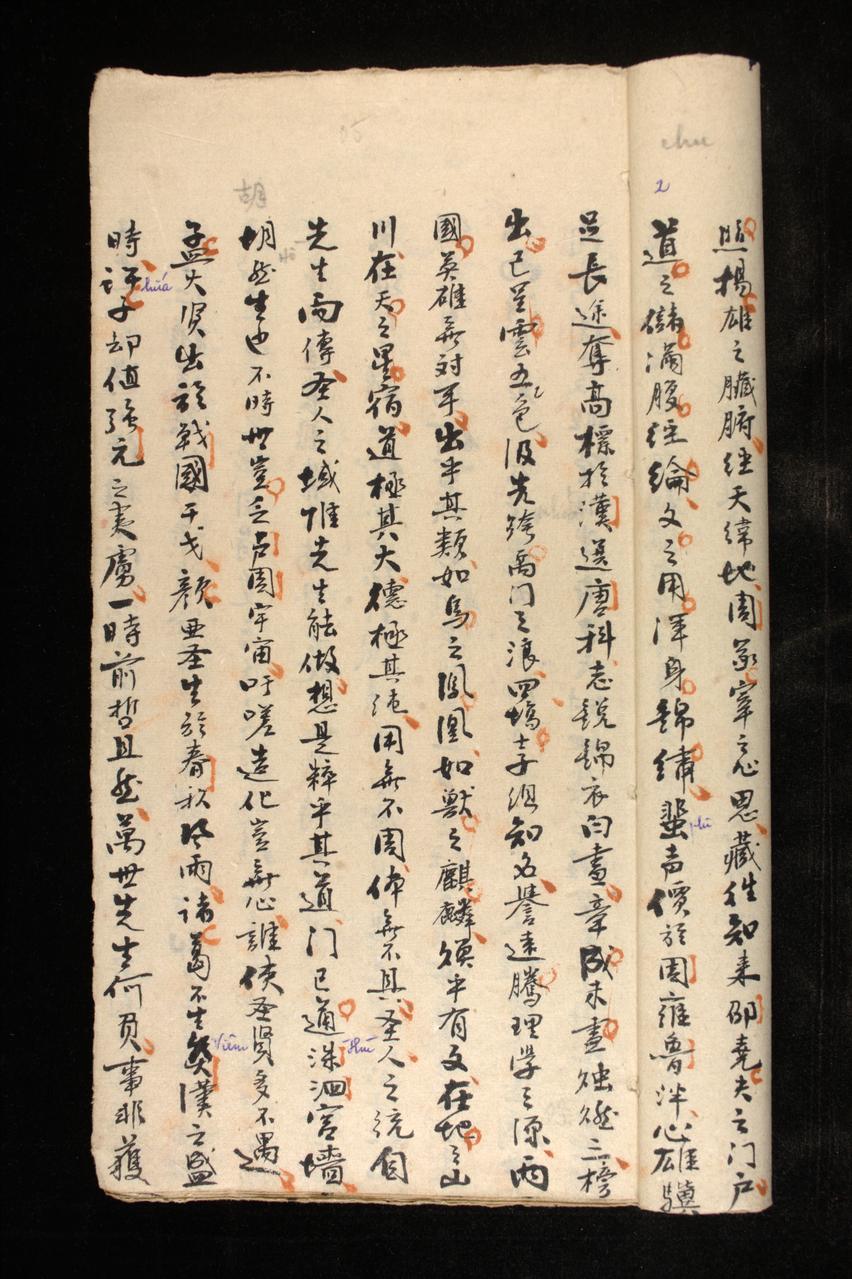 chu
2
照楊雄之臟腑經天緯地周冢宰之心思藏往知来邵堯夫之门户
道之儲滿腹經綸文之用渾身錦绣蜚声價於周雍魯泮心雄驥
足長途奪高標於漢選唐科志銳錦衣白晝章成未晝雄三榜
出已呈雲五色汲先跨禹门之浪四塲士子俱知名譽遠騰理学之源両
國英雄無対手出乎其類如鳥之凤凰如獣之麒麟煥乎有文在地之山
川在天之星宿道極其大德極其純用無不周体無不具圣人之統自
先生而傳圣人之域惟先生能做想是粹乎其道门已通洙泗宫墻
胡
胡然生也不時世豈乏占周宇宙吁嗟造化豈無心誰使圣贤多不遇
孟大贤出於戰國干戈顔亜圣生於春秋风雨諸葛不生炎漢之盛
時許子却值强元之夷虜一時前哲且然萬世先生何負事非獲
phủ
Hứa
Viêm
Thù
Hồ
05